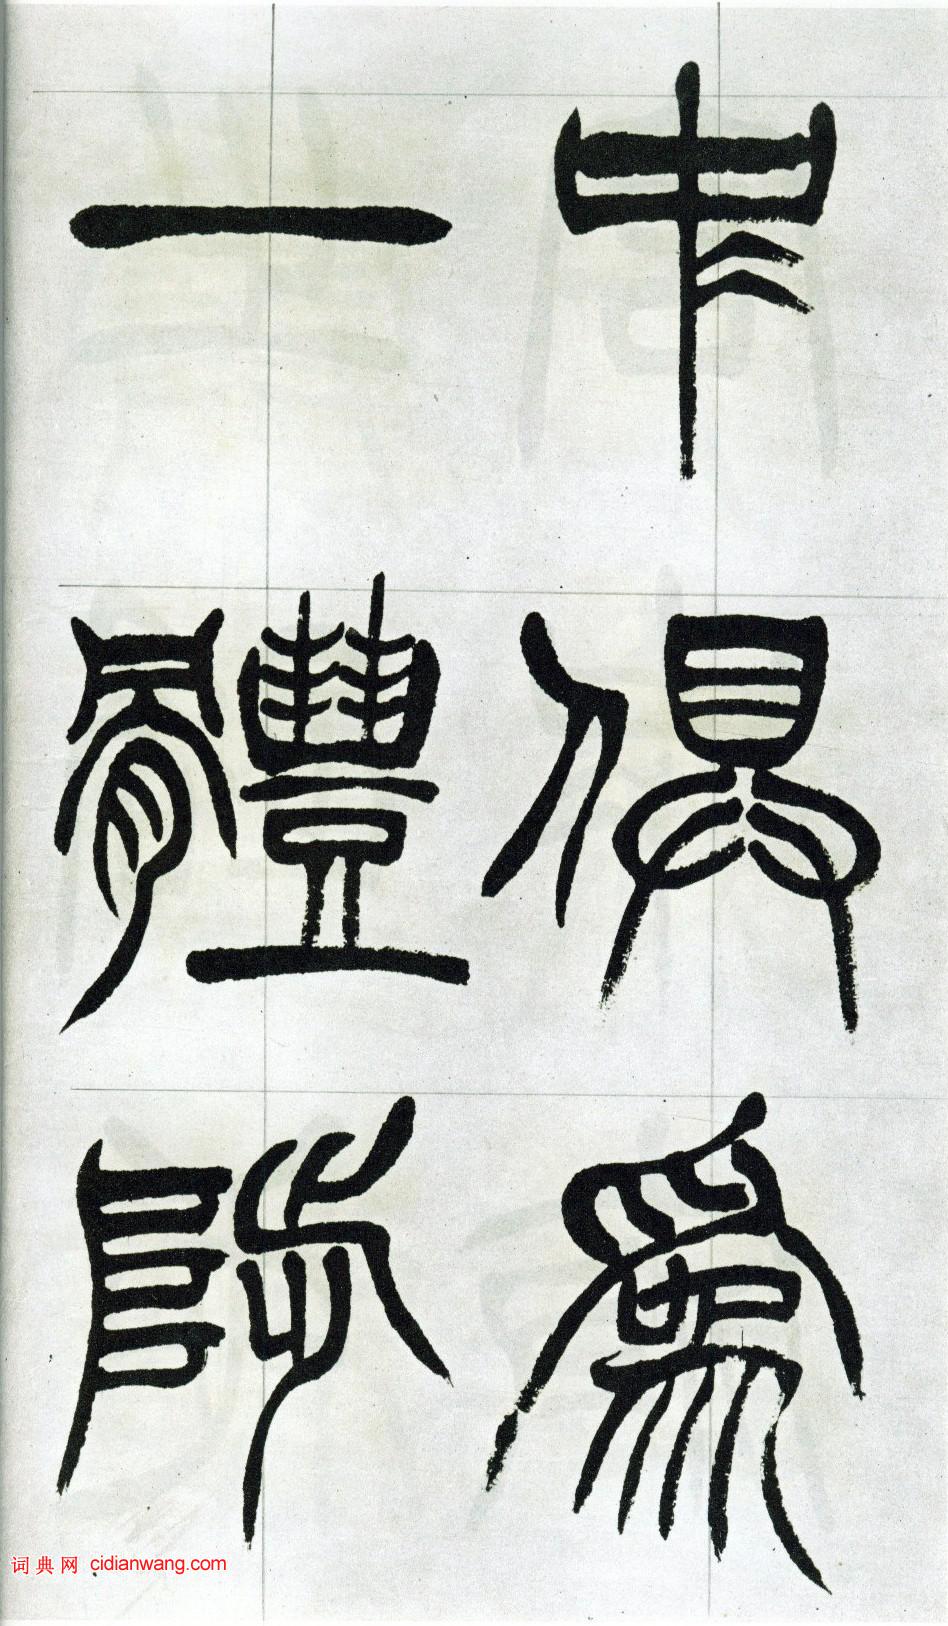 中俱為
一體陟
词典网 cidianwang.com